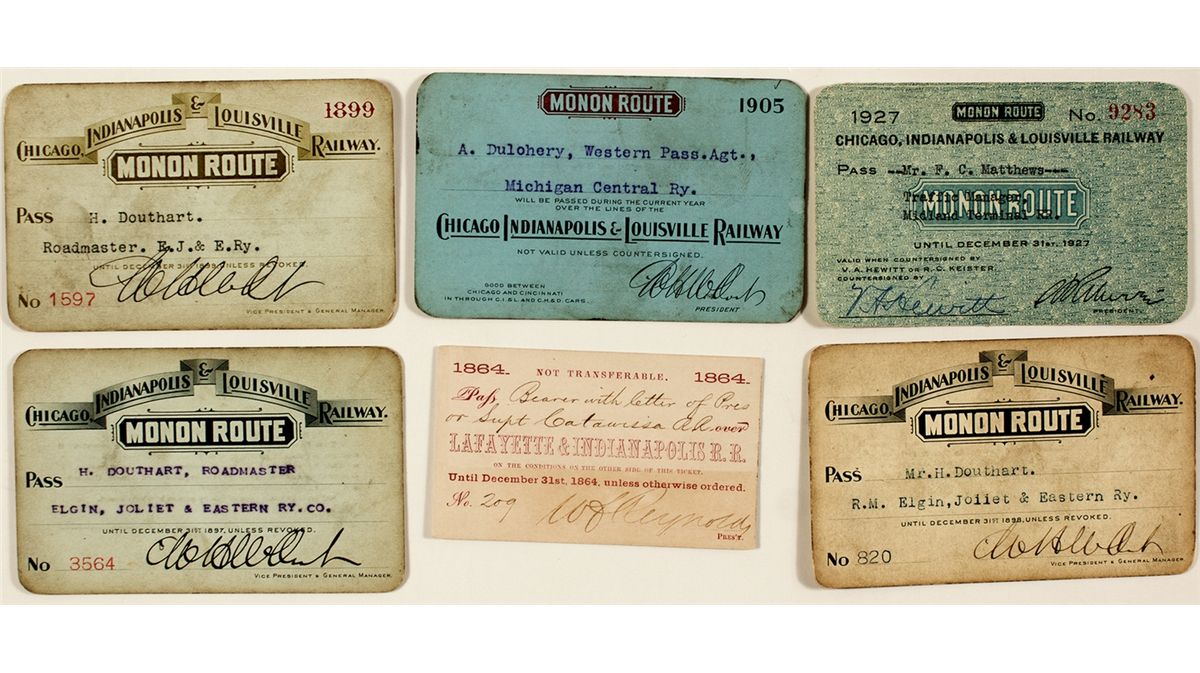 1899
CHICAGO, INDIANAPOLIS & LOUISVILLE RAILWAY.
MONON ROUTE
PASS H. Douthart.
Roadmaster. E.J.& E.Ry.
UNTIL DECEMBER 31ST 1899, UNLESS REVOKED.
No 1597
VICE PRESIDENT & GENERAL MANAGER.
MONON ROUTE 1905
A. Dulohery, Western Pass.Agt.,
Michigan Central Ry.
WILL BE PASSED DURING THE CURRENT YEAR
OVER THE LINES OF THE
CHICAGO INDIANAPOLIS & LOUISVILLE RAILWAY
NOT VALID UNLESS COUNTERSIGNED.
GOOD BETWEEN
CHICAGO AND CINCINNATI
IN THROUGH C.I.&L. AND C.H.& D. CARS.
PRESIDENT
1927 MONON ROUTE No. 9283
CHICAGO, INDIANAPOLIS & LOUISVILLE RAILWAY
PASS --Mr. F. C. Matthews---
Traffic Manager,
Midland Terminal RR.
MONON ROUTE
UNTIL DECEMBER 31ST, 1927
VALID WHEN COUNTERSIGNED BY
V. A. HEWITT OR R. C. KEISTER.
COUNTERSIGNED BY
V A Hewitt
PRESIDENT.
CHICAGO, INDIANAPOLIS & LOUISVILLE RAILWAY.
MONON ROUTE
PASS H. DOUTHART, ROADMASTER
ELGIN, JOLIET & EASTERN RY. CO.
UNTIL DECEMBER 31ST 1897, UNLESS REVOKED.
No 3564
VICE PRESIDENT & GENERAL MANAGER.
1864. NOT TRANSFERABLE. 1864.
Pass, Bearer with letter of Pres
or Supt Catawissa RR over
LAFAYETTE & INDIANAPOLIS R. R.
ON THE CONDITIONS ON THE OTHER SIDE OF THIS TICKET.
Until December 31st, 1864, unless otherwise ordered.
No. 209 W F Reynolds
PRES'T.
CHICAGO, INDIANAPOLIS & LOUISVILLE RAILWAY.
MONON ROUTE
PASS Mr.H.Douthart.
R.M. Elgin,Joliet & Eastern Ry.
UNTIL DECEMBER 31ST 1898, UNLESS REVOKED.
No 820
VICE PRESIDENT & GENERAL MANAGER.